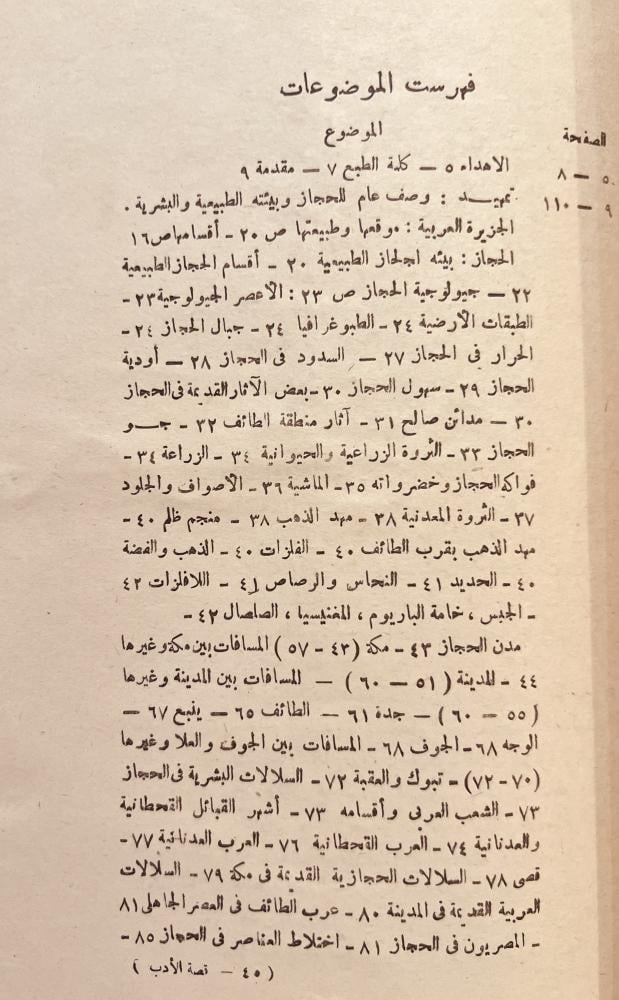 فهرست الموضوعات
الصفحة الموضوع
٥ — ٨ الاهداء ٥ — كلمة الطبع ٧ — مقدمة ٩
٩ — ١١٠ تمهيـــد : وصف عام للحجاز وبيئته الطبيعية والبشرية .
الجزيرة العربية : موقعها وطبيعتها ص ٢٠ - أقسامها ص ١٦
الحجاز : بيئه الحجاز الطبيعية ٢٠ - أقسام الحجاز الطبيعية
٢٢ — جيولوجية الحجاز ص ٢٣ : الأعصر الجيولوجية ٢٣ -
الطبقات الأرضية ٢٤ - الطبوغرافيا ٢٤ - جبال الحجاز ٢٤ -
الحرار في الحجاز ٢٧ — السدود فى الحجاز ٢٨ — أودية
الحجاز ٢٩ - سهول الحجاز ٣٠ - بعض الآثار القديمة فى الحجاز
٣٠ — مدائن صالح ٣١ - آثار منطقة الطائف ٣٢ - جـــو
الحجاز ٣٣ - الثروة الزراعية والحيوانية ٣٤ - الزراعة ٣٤ -
فواكه الحجاز وخضرواته ٣٥ - الماشية ٣٦ - الأصواف والجلود
٣٧ - الثروة المعدنية ٣٨ - مهد الذهب ٣٨ - منجم ظلم ٤٠ -
مهد الذهب بقرب الطائف ٤٠ - الفلزات ٤٠ - الذهب والفضة
٤٠ - الحديد ٤١ - النحاس والرصاص ٤١ - اللافلزات ٤٢
- الجبس ، خامة الباريوم ، المغنيسيا ، الصلصال ٤٢ -
مدن الحجاز ٤٣ - مكة (٤٣ - ٥٧) المسافات بين مكة وغيرها
٤٤ - المدينة (٥١ — ٦٠) — المسافات بين المدينة وغيرها
(٥٥ — ٦٠) — جدة ٦١ — الطائف ٦٥ — ينبع ٦٧ —
الوجه ٦٨ - الجوف ٦٨ - المسافات بين الجوف والعلا وغيرها
(٧٠ - ٧٢) - تبوك والعقبة ٧٢ - السلالات البشرية فى الحجاز
٧٣ - الشعب العربى وأقسامه ٧٣ - أشهر القبائل القحطانية
والعدنانية ٧٤ - العرب القحطانية ٧٦ - العرب العدنانية ٧٧ -
قصى ٧٨ - السلالات الحجازية القديمة فى مكة ٧٩ - السلالات
العربية القديمة فى المدينة ٨٠ - عرب الطائف فى العصر الجاهلى ٨١
- المصريون فى الحجاز ٨١ - اختلاط العناصر فى الحجاز ٨٥ -
(٤٥ — قصة الأدب)